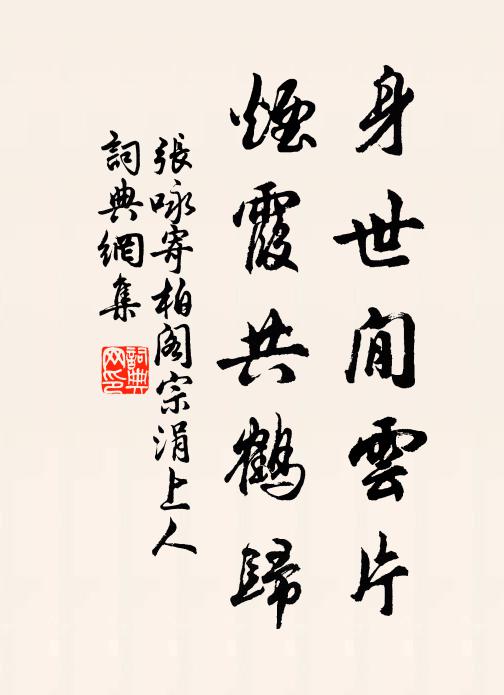 身世閒雲片
煙霞共鶴歸
張咏寄柏閣宗涓上人
詞典網集
詞典网印